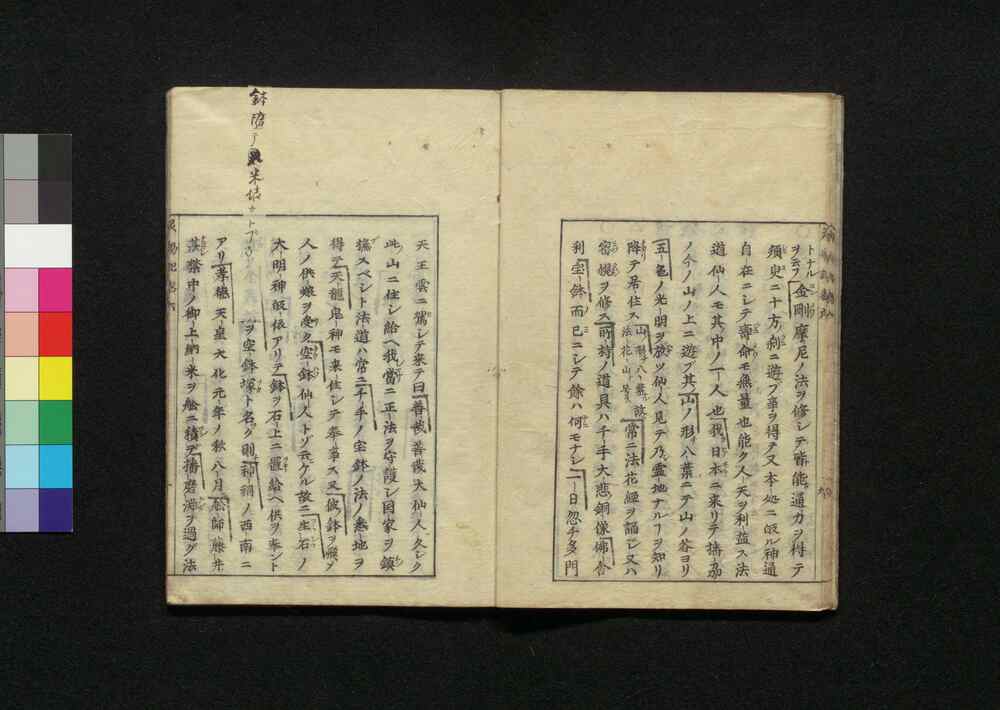 トナル
ヲ云フ
金剛摩尼ノ法ヲ修シテ皆能通力ヲ得テ
須臾ニ十方刹ニ遊ブ事ヲ得テ又本処ニ皈ル神通
自在ニシテ壽命モ無量也能ク人天ヲ利益ス法
道仙人モ其中ノ一人也我日本ニ来リテ播磨
ノ今ノ山ノ上ニ遊ブ其山ノ形八葉ニテ山ノ谷ヨリ
五色ノ光明ヲ放ツ仙人見テ乃霊地ナルヿヲ知リ
降テ居住ス
山形八葉故
法花山ト号ス
常ニ法花経ヲ誦シ又ハ
密観ヲ修ス所持ノ道具ハ千手大悲銅像佛舎
利宝鉢而已ニシテ餘ハ何モナシ一日忽チ多門
天王雲ニ駕シテ来テ曰善哉善哉大仙人久シク
此山ニ住シ給ヘ我當ニ正法ヲ守護シ国家ヲ鎮
撫スベシト法道ハ常ニ千手ノ宝鉢ノ法ノ悉地ヲ
得テ天龍鬼神モ来住シテ奉事ス又彼鉢ヲ飛シ
人ノ供娘ヲ受ク空鉢仙人トゾ云ケル故ニ生石ノ
大明神皈依アリテ鉢ヲ石上ニ置給ヘ供ヲ奉ント
アリ
ヲ空鉢塚ト名ク則神祠ノ西南ニ
孝徳天皇大化元年ノ秋八月船師藤井
禁中ノ御上納米ヲ舩ニ積テ播磨灘ヲ過グ法